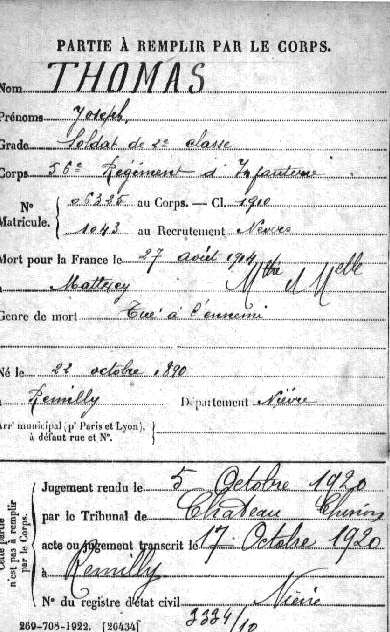 PARTIE À REMPLIR PAR LE CORPS.
Nom THOMAS
Prénoms Joseph,
Grade Soldat de 2e classe
Corps 56e Régiment d'Infanterie
N° Matricule. { 06326 au Corps. — Cl. 1910
1043 au Recrutement Nevers
Mort pour la France le 27 août 1914
à Mattexey Mthe et Melle
Genre de mort Tué à l'ennemi
Né le 22 octobre 1890
à Remilly Département Nièvre
Arr' municipal (p' Paris et Lyon),
à défaut rue et N°.
Cette partie
n'est pas à remplir
par le Corps.
Jugement rendu le 5 Octobre 1920
par le Tribunal de Chateau Chinon
acte ou jugement transcrit le 17 Octobre 1920
à Remilly
N° du registre d'état civil Nièvre
3334/10
269-708-1922. [26434]